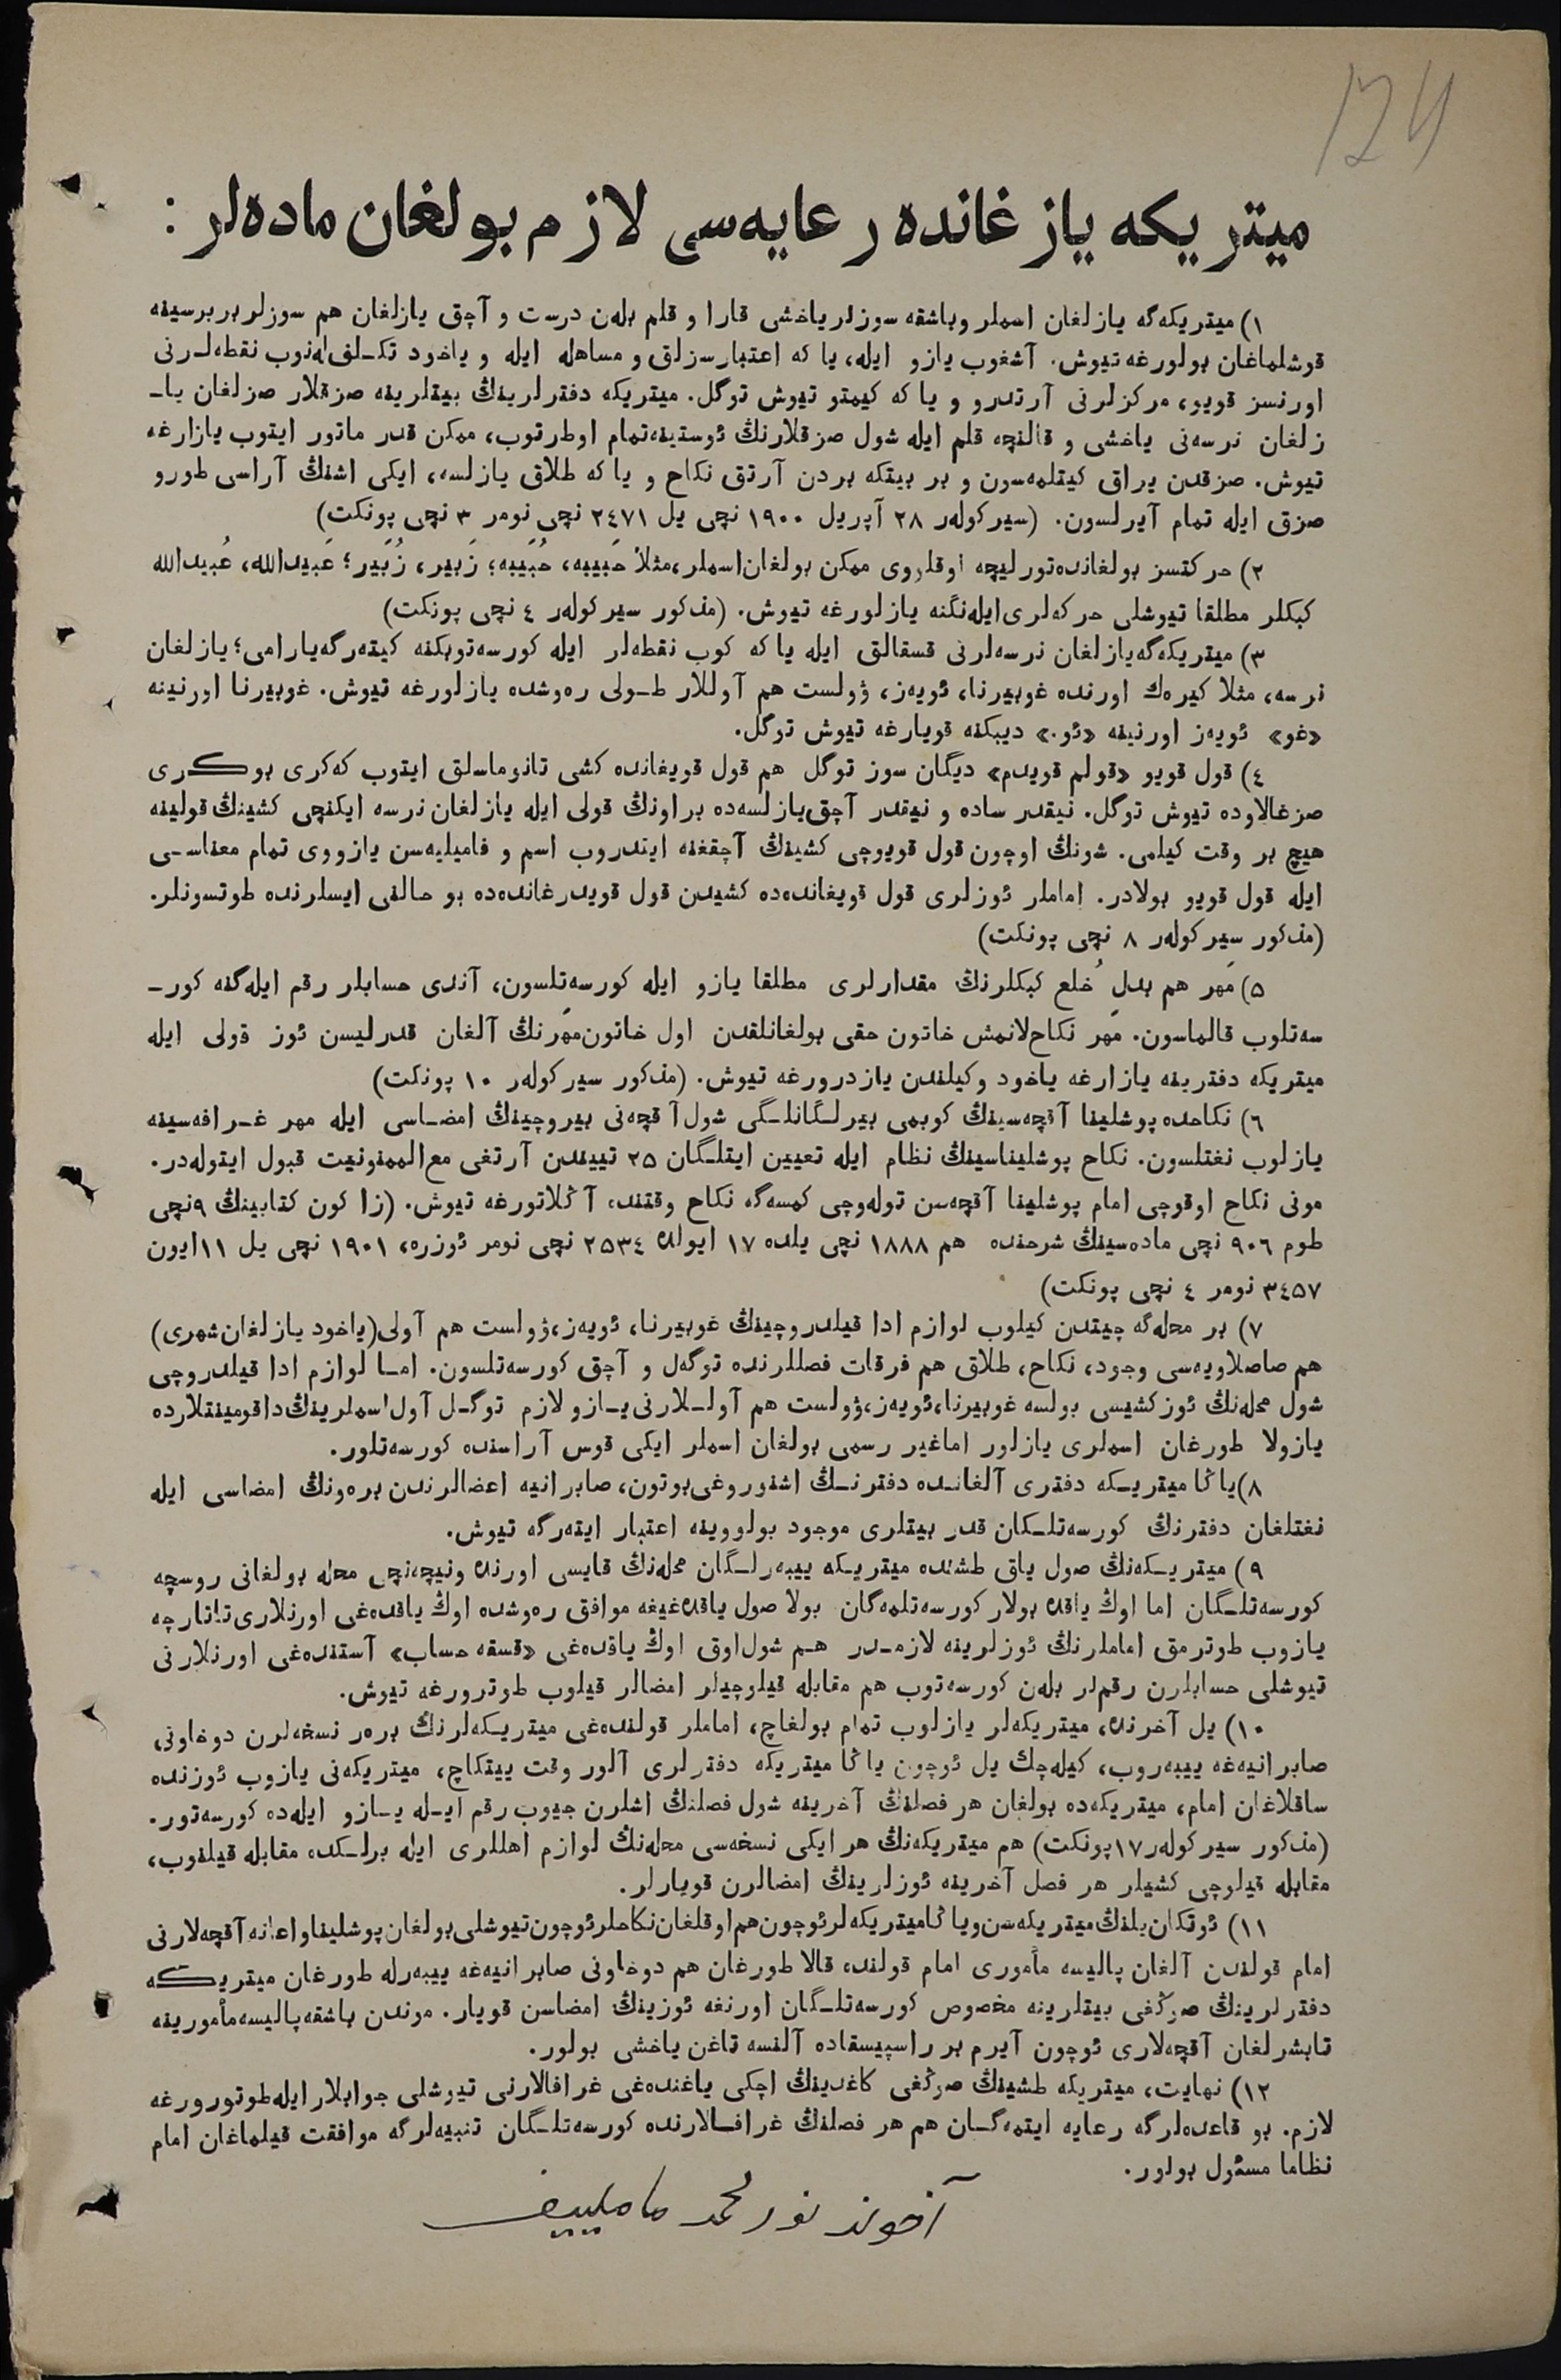 124
ميتريكه يازغانده رعايه‌سى لازم بولغان ماده‌لر :
١) ميتريكه‌گه يازلغان اسملر وباشقه سوزلر ياخشى قارا و قلم بله‌ن درست و آچق يازلغان هم سوزلر بربرسينه
قوشلماغان بولورغه تيوش. آشغوب يازو ايله، يا كه اعتبارسزلق و مساهله ايله و ياخود تكـلف‌له‌نوب نقطه‌لـرنى
اورنسز قويو، مركزلرنى آرتدرو و يا كه كيمتو تيوش توگل. ميتريكه دفترلرينڭ بيتلرينه صزقلار صزلغان ياـ
زلغان نرسه‌نى ياخشى و قالنچه قلم ايله شول صزقلارنڭ ئوستينه‌تمام اوطرتوب، ممكن قدر ماتور ايتوب يازارغه
تيوش. صزقدن يراق كيتلمه‌سون و بر بيتكه بردن آرتق نكاح و يا كه طلاق يازلسه، ايكى اشنڭ آراسى طورو
صزق ايله تمام آيرلسون. (سيركوله‌ر ٢٨ آپريل ١٩٠٠ نچى يل ٢٤٧١ نچى نومر ٣ نچى پونكت)
٢) حركتسز بولغانده‌تورليچه اوقلروى ممكن بولغان‌اسملر،مثلا حَبيبه، حُبَيبه؛ زَبير، زُبَير؛ عَبيدالله، عُبيدالله
كبكلر مطلقا تيوشلى حركه‌لرى‌ايله‌نگنه يازلورغه تيوش. (مذكور سيركوله‌ر ٤ نچى پونكت)
٣) ميتريكه‌گه‌يازلغان نرسه‌لرنى قسقالق ايله يا كه كوب نقطه‌لر ايله كورسه‌توبكنه كيته‌رگه‌يارامى؛ يازلغان
نرسه، مثلا كيره‌ك اورنده غوبيرنا، ئويه‌ز، ۋولست هم آوللار طـولى ره‌وشده يازلورغه تيوش. غوبيرنا اورنينه
«غو» ئويه‌ز اورنينه «ئو.» ديبكنه قويارغه تيوش توگل.
٤) قول قويو «قولم قويدم» ديگان سوز توگل هم قول قويغانده كشى تانوماسلق ايتوب كه‌كرى بوكرى
صزغالاوده تيوش توگل. نيقدر ساده و نيقدر آچق‌يازلسه‌ده براونڭ قولى ايله يازلغان نرسه ايكنچى كشينڭ قولينه
هيچ بر وقت كيلمى. شونڭ اوچون قول قويوچى كشينڭ آچقغنه ايتدروب اسم و فاميليه‌سن يازووى تمام معناسـى
ايله قول قويو بولادر. اماملر ئوزلرى قول قويغانده‌ده كشيدن قول قويدرغانده‌ده بو حالنى ايسلرنده طوتسونلر.
(مذكور سيركوله‌ر ٨ نچى پونكت)
٥) مَهر هم بدلِ خُلع كبكلرنڭ مقدارلرى مطلقا يازو ايله كورسه‌تلسون، آندى حسابلر رقم ايله‌گنه كورـ
سه‌تلوب قالماسون. مَهر نكاح‌لانمش خاتون حقى بولغانلقدن اول خاتون‌مهرنڭ آلغان قدرليسن ئوز قولى ايله
ميتريكه دفترينه يازارغه ياخود وكيلندن يازدرورغه تيوش. (مذكور سيركوله‌ر ١٠ پونكت)
٦) نكاحده پوشلينا آقچه‌سينڭ كوبمى بيرلـگانلـگى شول آقچه‌نى بيروچينڭ امضـاسى ايله مهر غـرافه‌سينه
يازلوب نغتلسون. نكاح پوشليناسينڭ نظام ايله تعيين ايتلـگان ٢٥ تييندن آرتغى مع‌الممنونيت قبول ايتوله‌در.
مونى نكاح اوقوچى امام پوشلينا آقچه‌سن توله‌وچى كمسه‌گه نكاح وقتنده آڭلاتورغه تيوش. (زاكون كتابينڭ ٩نچى
طوم ٩٠٦ نچى ماده‌سينڭ شرحنده هم ١٨٨٨ نچى يلده ١٧ ايولده ٢٥٣٤ نچى نومر ئوزره، ١٩٠١ نچى يل ١١ايون
٣٤٥٧ نومر ٤ نچى پونكت)
٧) بر محله‌گه چيتدن كيلوب لوازم ادا قيلدروچينڭ غوبيرنا، ئويه‌ز،ۋولست هم آولى(ياخود يازلغان‌شهرى)
هم صاصلاويه‌سى وجود، نكاح، طلاق هم فرقات فصللرنده توگه‌ل و آچق كورسه‌تلسون. امـا لوازم ادا قيلدروچى
شول محله‌نڭ ئوزكشيسى بولسه غوبيرنا،ئويه‌ز،ۋولست هم آولـلارنى يـازو لازم توگـل آول‌اسملرينڭ‌داقومينتلارده
يازولا طورغان اسملرى يازلور اماغير رسمى بولغان اسملر ايكى قوس آراسنده كورسه‌تلور.
٨)ياڭا ميتريـكه دفترى آلغانـده دفترنـڭ اشنوروغى‌بوتون، صابرانيه اعضالرندن بره‌ونڭ امضاسى ايله
نغتلغان دفترنڭ كورسه‌تلـكان قدر بيتلرى موجود بولووينه اعتبار ايته‌رگه تيوش.
٩) ميتريـكه‌نڭ صول ياق طشنده ميتريـكه ييبه‌رلـگان محله‌نڭ قايسى اورنده ونيچه‌نچى محله بولغانى روسچه
كورسه‌تلـگان اما اوڭ ياقده بولار كورسه‌تلمه‌گان بولا صول ياقده‌غيغه موافق ره‌وشده اوڭ ياقده‌غى اورنلارى‌تاتارچه
يازوب طوترمق اماملرنڭ ئوزلرينه لازمـدر هـم شول‌اوق اوڭ ياقده‌غى «قسقه حساب» آستنده‌غى اورنلارنى
تيوشلى حسابلرن رقم‌لر بله‌ن كورسه‌توب هم مقابله قيلوچيلر امضالر قيلوب طوترورغه تيوش.
١٠) يل آخرنده، ميتريكه‌لر يازلوب تمام بولغاچ، اماملر قولنده‌غى ميتريـكه‌لرنڭ بره‌ر نسخه‌لرن دوخاونى
صابرانيه‌غه ييبه‌روب، كيله‌چك يل ئوچون ياڭا ميتريكه دفترلرى آلور وقت ييتكاچ، ميتريكه‌نى يازوب ئوزنده
ساقلاغان امام، ميتريكه‌ده بولغان هر فصلنڭ آخرينه شول فصلنڭ اشلرن جيوب رقم ايـله يـازو ايله‌ده كورسه‌تور.
(مذكور سيركوله‌ر١٧پونكت) هم ميتريكه‌نڭ هر ايكى نسخه‌سى محله‌نڭ لوازم اهللرى ايله برلـكده مقابله قيلنوب،
مقابله قيلوچى كشيلر هر فصل آخرينه ئوزلرينڭ امضالرن قويارلر.
١١) ئوتكان‌يلنڭ‌ميتريكه‌سن‌وياڭاميتريكه‌لرئوچون‌هم‌اوقلغان‌نكاحلرئوچون‌تيوشلى‌بولغان‌پوشليناواعانه‌آقچه‌لارنى
امام قولندن آلغان پاليسه مأمورى امام قولنده قالا طورغان هم دوخاونى صابرانيه‌غه ييبه‌رله طورغان ميتريكه
دفترلرينڭ صوڭغى بيتلرينه مخصوص كورسه‌تلـگان اورنغه ئوزينڭ امضاسن قويار. موندن باشقه‌پاليسه‌مأمورينه
تابشرلغان آقچه‌لارى ئوچون آيرم بر راسپيسقاده آلنسه تاغن ياخشى بولور.
١٢) نهايت، ميتريكه طشينڭ صوڭغى كاغدينڭ اچكى ياغنده‌غى غرافالارنى تيوشلى جوابلار ايله‌طوتورورغه
لازم. بو قاعده‌لرگه رعايه ايتمه‌گـان هم هر فصلنڭ غرافـالارنده كورسه‌تلـگان تنبيه‌لرگه موافقت قيلماغان امام
نظاما مسئول بولور.
آخوند نورمحمد مامليیف